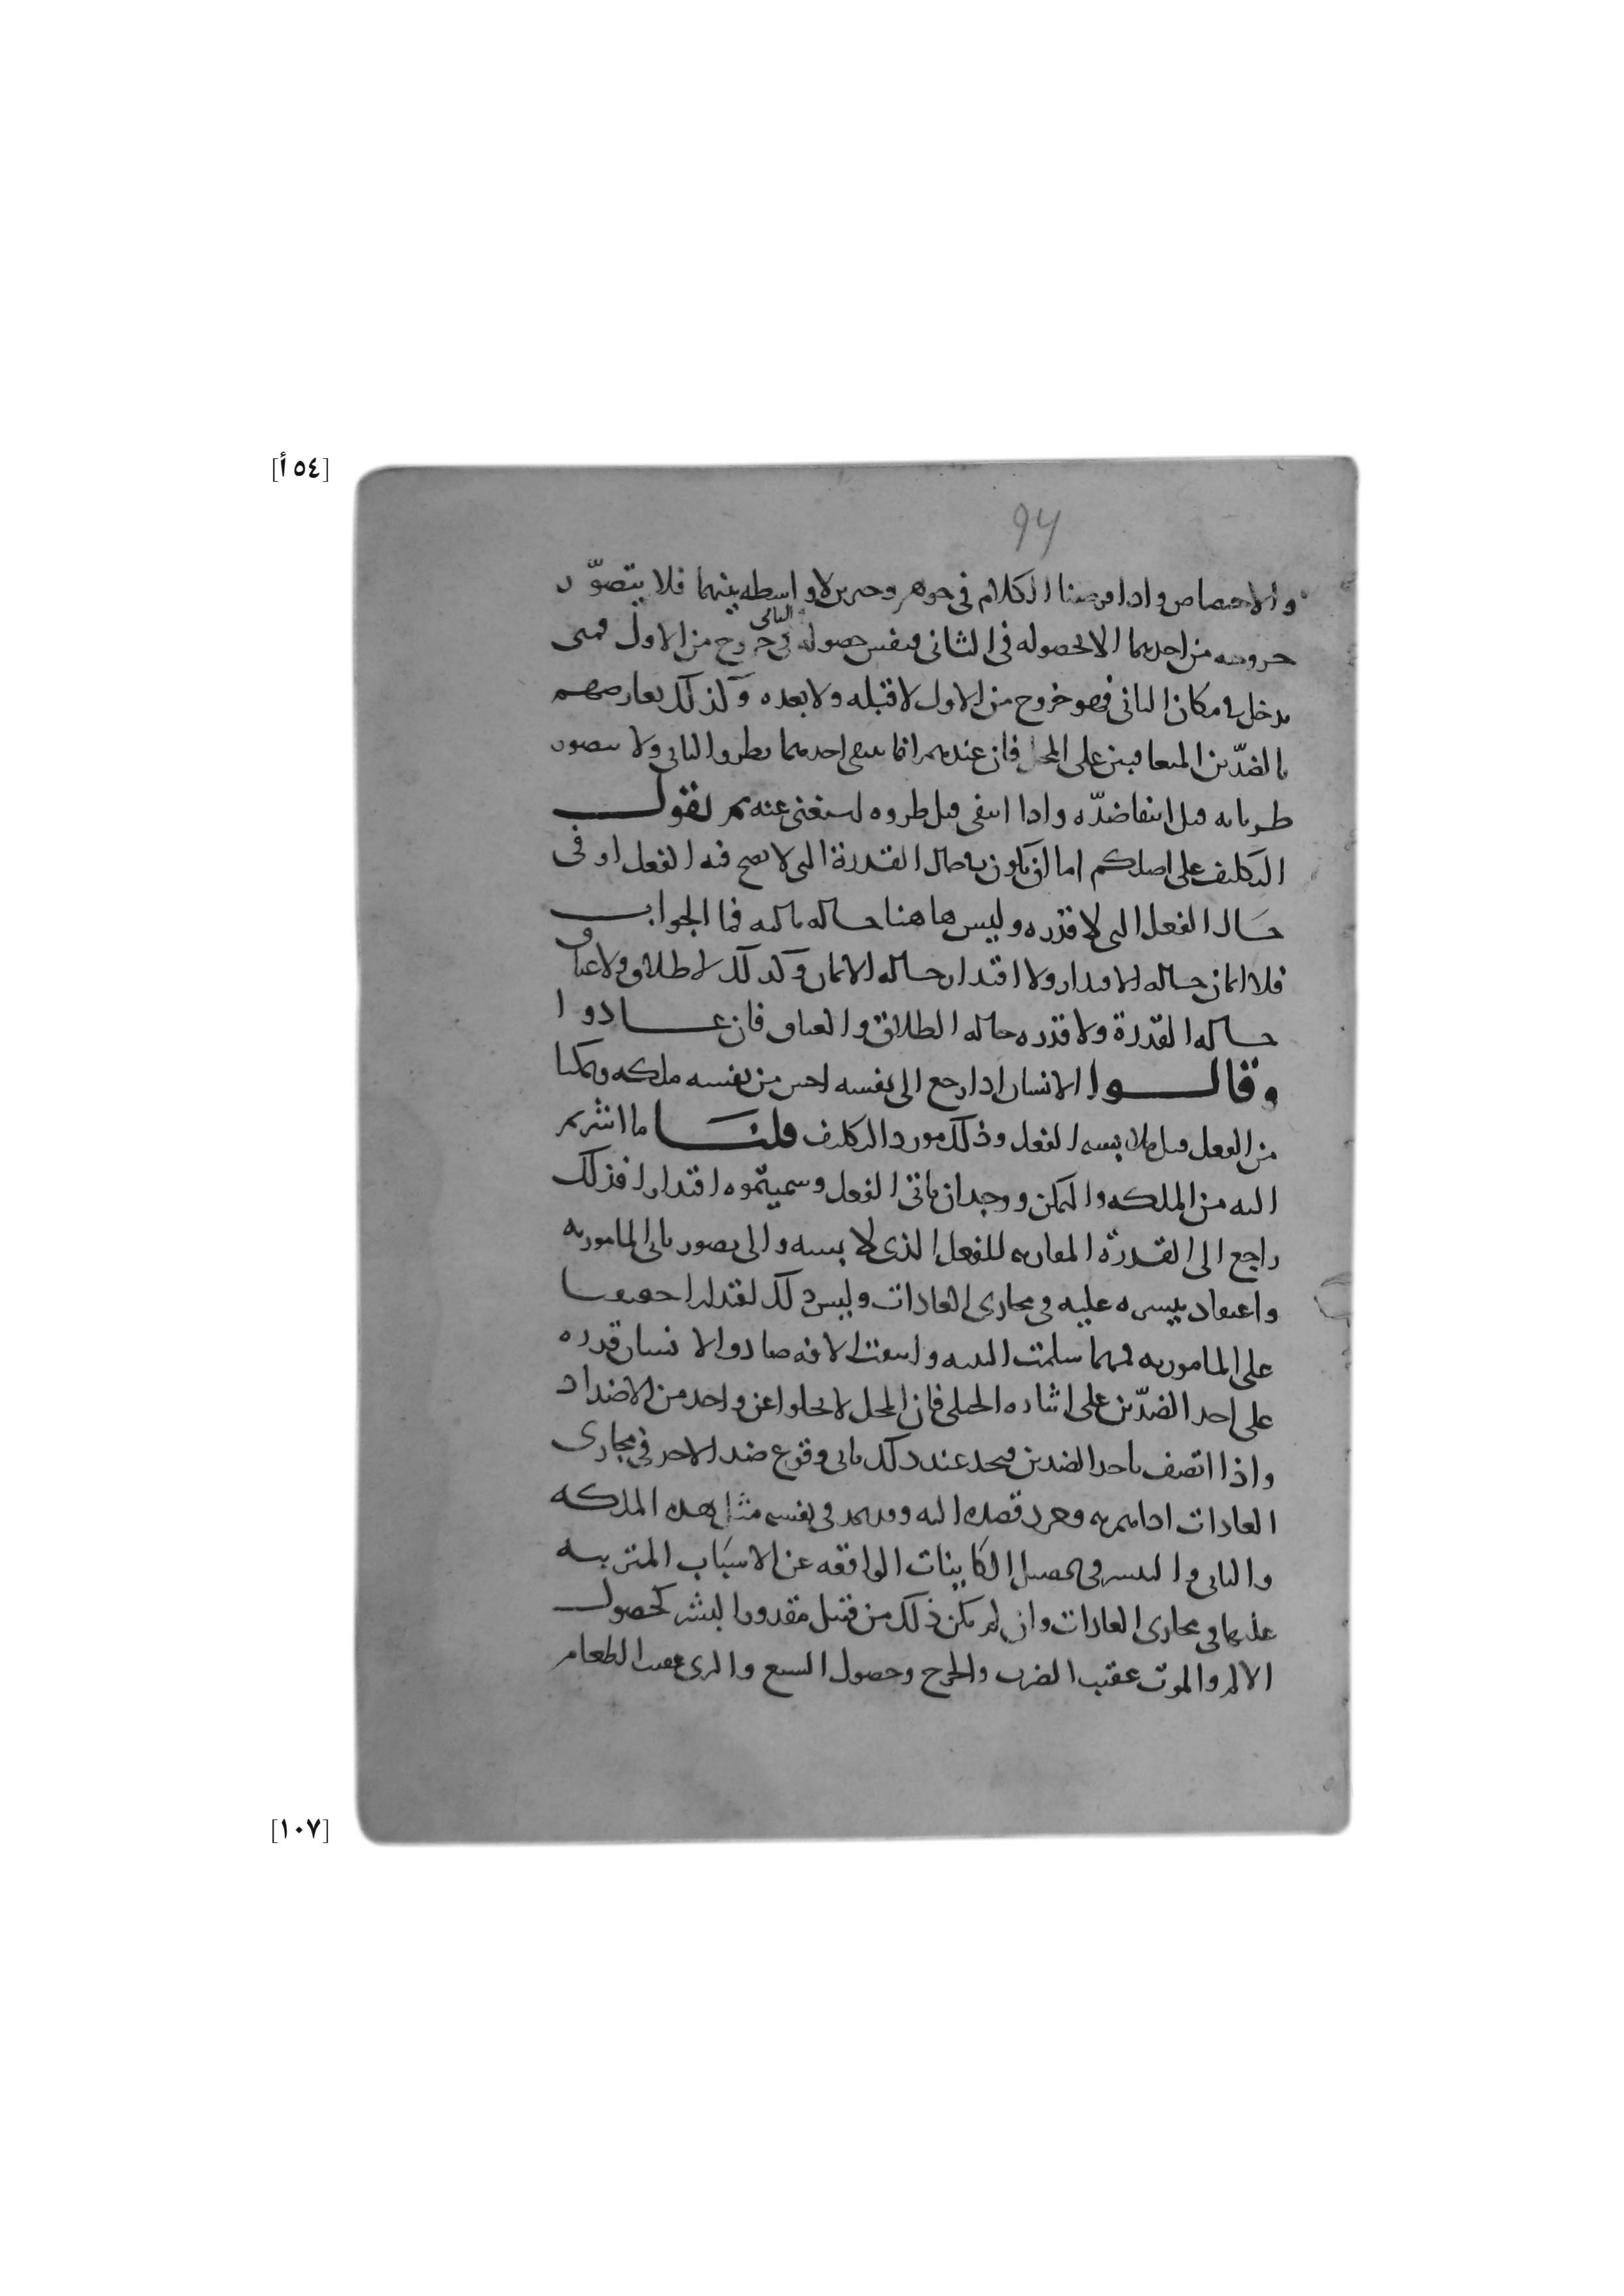 [٥٤ أ]
94
والاختصاص واذا فرضنا الكلام في جوهر وحيزين لا واسطه بينهما فلا يتصوّر
خروجه من احدهما الا بحصوله في الثاني فنفس حصوله في الثاني خروج من الاول فمتى
يدخل في مكان الثاني فهو خروج من الاول لا قبله ولا بعده وكذلك يعارضهم
بالضدّين المتعاقبين على المحل فان عندهم انما ينتفي احدهما بطروا الثاني ولا يتصور
طريانه قبل انتفا ضدّه واذا انتفى قبل طروه استغنى عنه ثم نقول
التكليف على اصلكم اما ان يكون في حال القدرة التي لا يصح فيه الفعل او في
حَال الفعل التي لا قدره وليس هاهنا حاله ثالثه فما الجواب
فلا ايمان حاله الاقتدار ولا اقتدار حاله الايمان وكذلك لا طلاق ولا عتاق
حاله القدرة ولا قدره حاله الطلاق والعتاق فان عادوا
وقالوا الانسان اذا رجع الى نفسه احس من نفسه ملكه وتمكنا
من الفعل قبل ملابسه الفعل وذلك مورد التكليف قلنا ما اشرتم
اليه من الملكه والتمكن ووجدان تاتي الفعل وسميتموه اقتدارا فذلك
راجع الى القدرة المقارنه للفعل الذي لابسه والى تصور تاتي المامور به
واعتقاد تيسره عليه في مجاري العادات وليس ذلك اقتدارا حقيقيا
على المامور به فمهما سلمت البنيه وانتفت الافه صادف الانسان قدره
على احد الضدّين على اشاره الجبلي فان المحل لا يخلوا عن واحد من الاضداد
واذا اتصف باحد الضدين فيجد عند ذلك تاتي وقوع ضد الاخر في مجاري
العادات اذا هم به وجرد قصده اليه وقد يجد في نفسه مثل هذه الملكه
والتاتي والتيسر في تحصيل الكاينات الواقعه عن الاسباب المترتبه
عليها في مجاري العادات وان لم يكن ذلك من قبيل مقدور البشر كحصول
الالم والموت عقيب الضرب والجرح وحصول الشبع والري عقيب الطعام
[١٠٧]